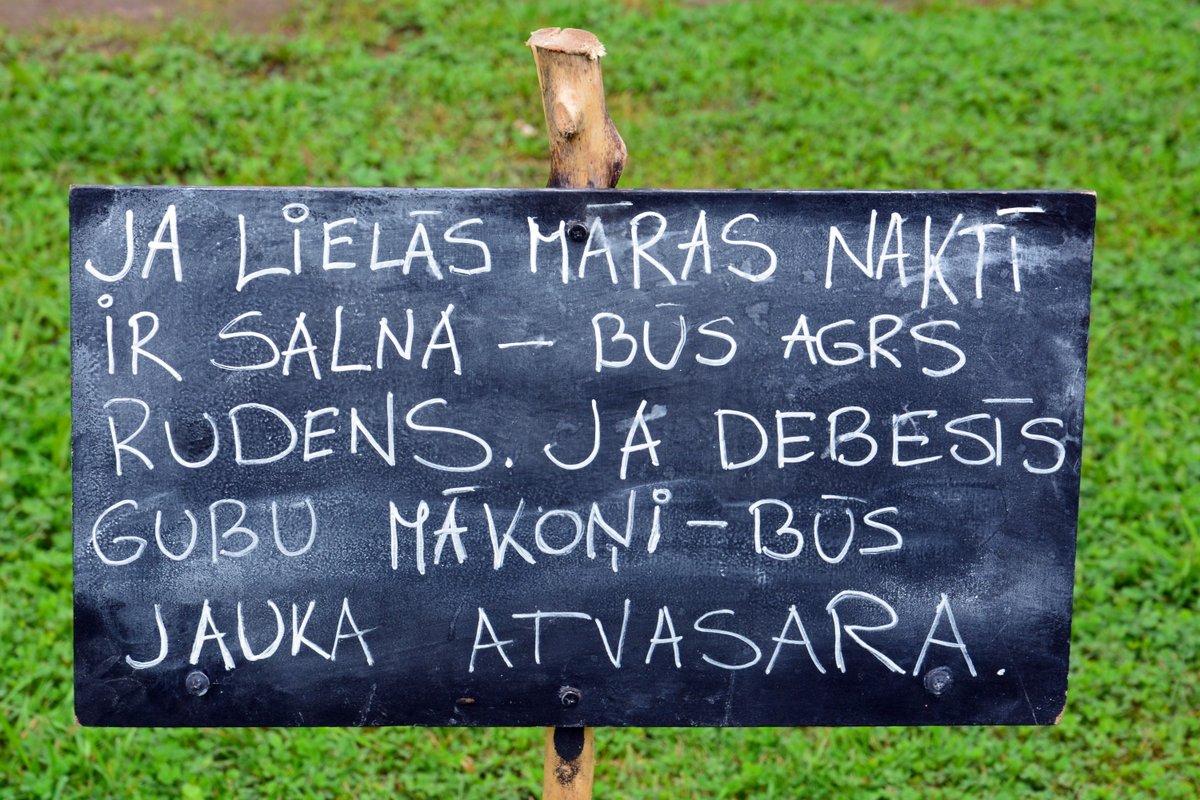 JA LIELĀS MĀRAS NAKTĪ
IR SALNA – BŪS AGRS
RUDENS. JA DEBESĪS
GUBU MĀKOŅI – BŪS
JAUKA ATVASARA.